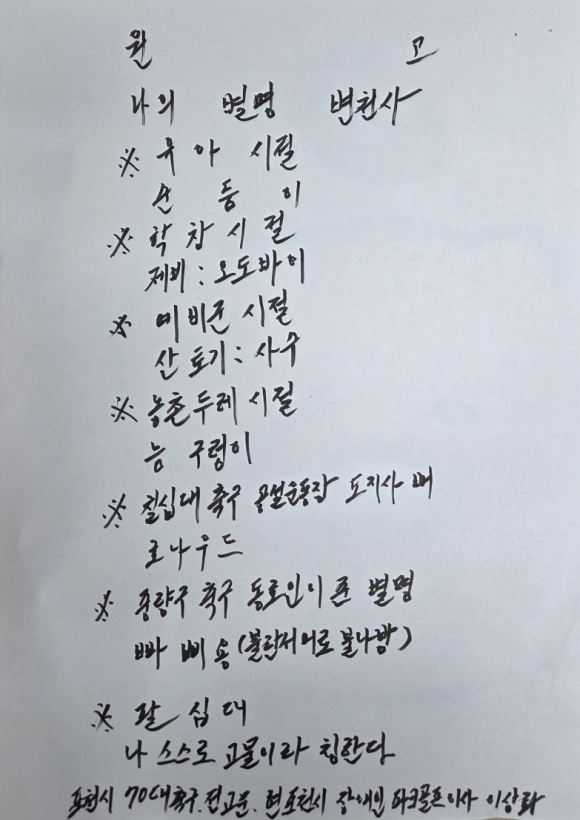 원 고
나의 별명 변천사
※ 유아 시절
순둥이
※ 학창시절
제비 : 오도바이
※ 예비군 시절
산토기 : 사수
※ 농촌두레 시절
능구렁이
※ 칠십대 축구 공설운동장 도지사배
로나우드
※ 중량구 축구 동호인이 준 별명
빠삐용 (불란서어로 불나방)
※ 팔십대
나 스스로 고물이라 칭한다
포천시 70대축구.전고문. 현포천시 장애인 파크골프이사